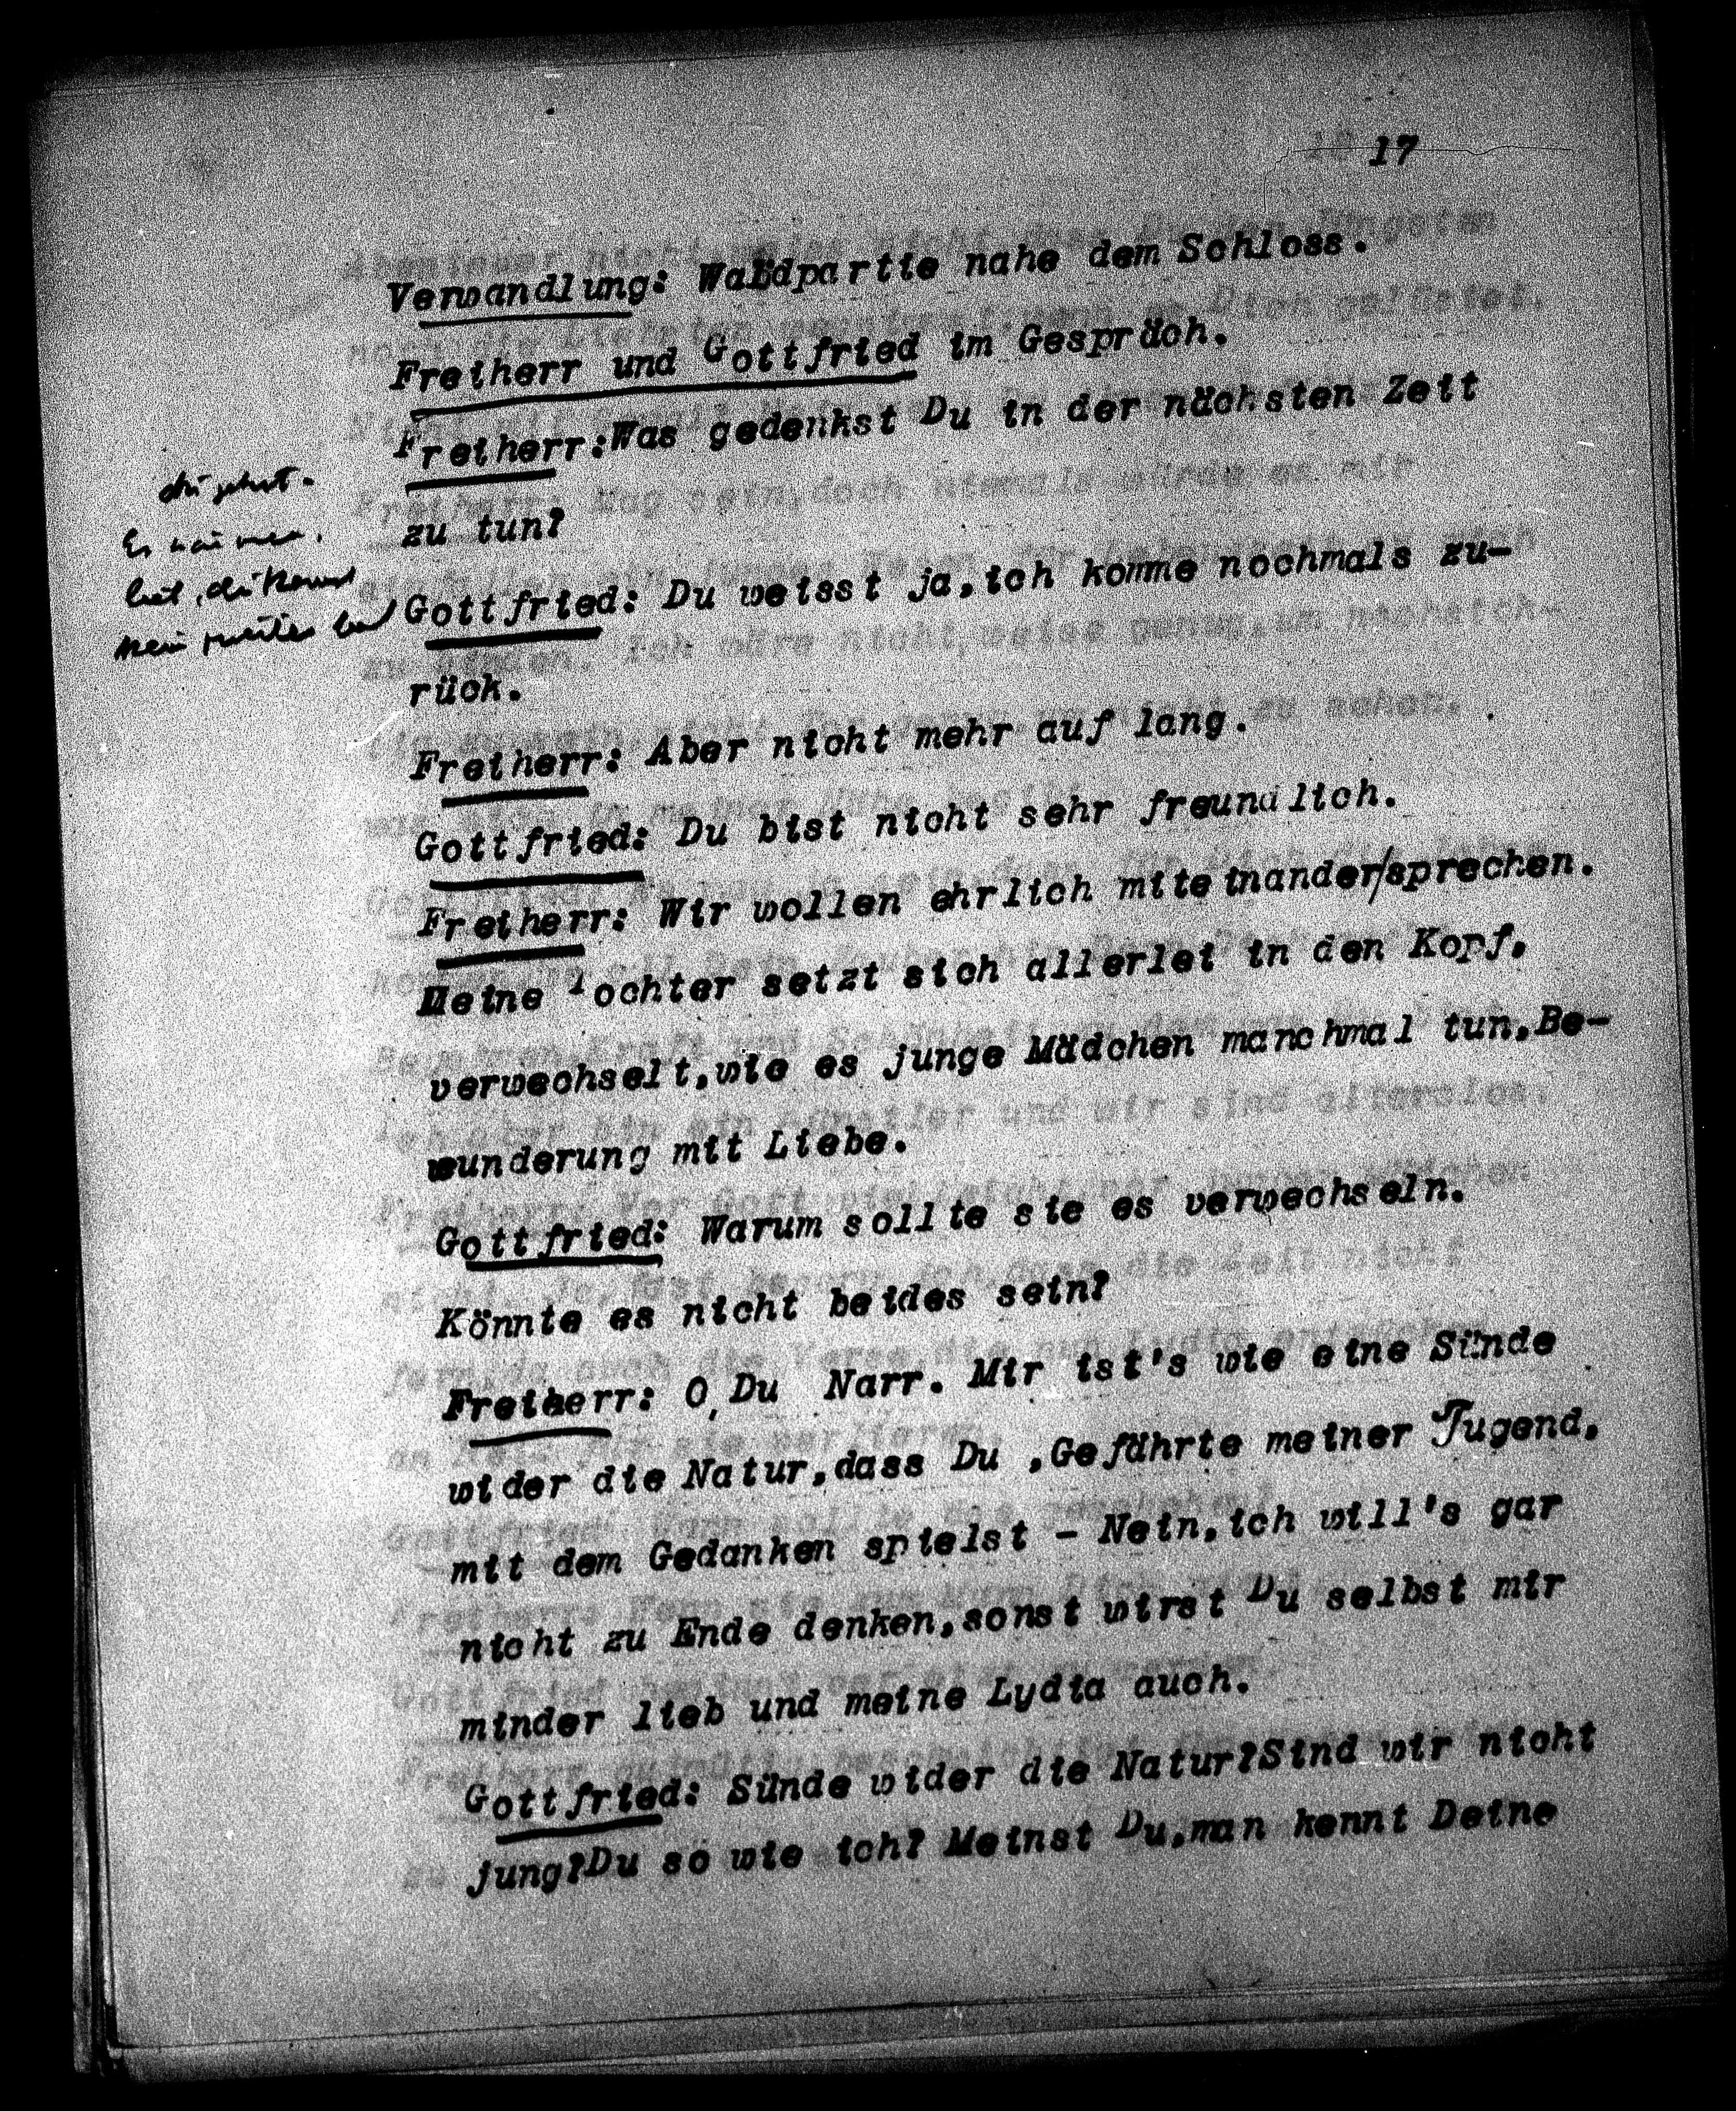 17
Verwandlung: Waldpartie nahe dem Schloss.
Freiherr und Gottfried im Gespräch.
Freiherr:Was gedenkst Du in der nächsten Zeit
zu tun?
Gottfried: Du weisst ja,ich komme nochmals zu-
rück.
Freiherr: Aber nicht mehr auf lang.
Gottfried: Du bist nicht sehr freundlich.
Freiherr: Wir wollen ehrlich miteinander/sprechen.
Meine Tochter setzt sich allerlei in den Kopf,
verwechselt,wie es junge Mädchen manchmal tun,Be-
wunderung mit Liebe.
Gottfried: Warum sollte sie es verwechseln.
Könnte es nicht beides sein?
Freiherr: O, Du Narr. Mir ist's wie eine Sünde
wider die Natur,dass Du ,Gefährte meiner Jugend,
mit dem Gedanken spielst - Nein,ich will's gar
nicht zu Ende denken,sonst wirst Du selbst mir
minder lieb und meine Lydia auch.
Gottfried: Sünde wider die Natur?Sind wir nicht
jung?Du so wie ich? Meinst Du,man kennt Deine